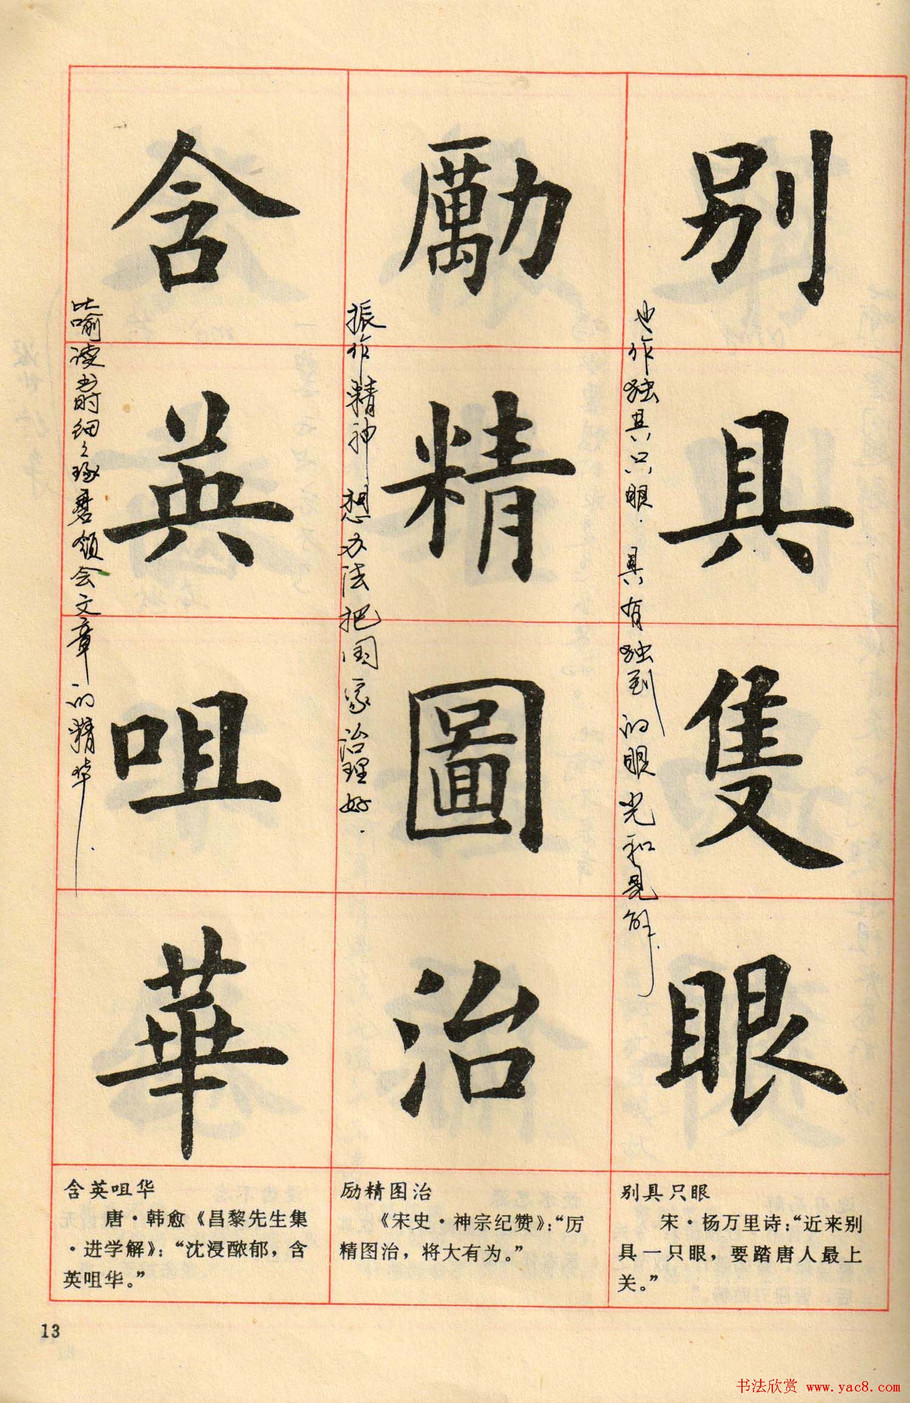 别具隻眼
也作独具只眼．具有独到的眼光和见解．
勵精圖治
振作精神 想办法把国家治理好．
含英咀華
比喻读书时细细琢磨领会文章的精华．
别具只眼
宋·杨万里诗：“近来别
具一只眼，要踏唐人最上
关。”
励精图治
《宋史·神宗纪赞》：“厉
精图治，将大有为。”
含英咀华
唐·韩愈《昌黎先生集
·进学解》：“沈浸醲郁，含
英咀华。”
13
书法欣赏 www.yac8.com